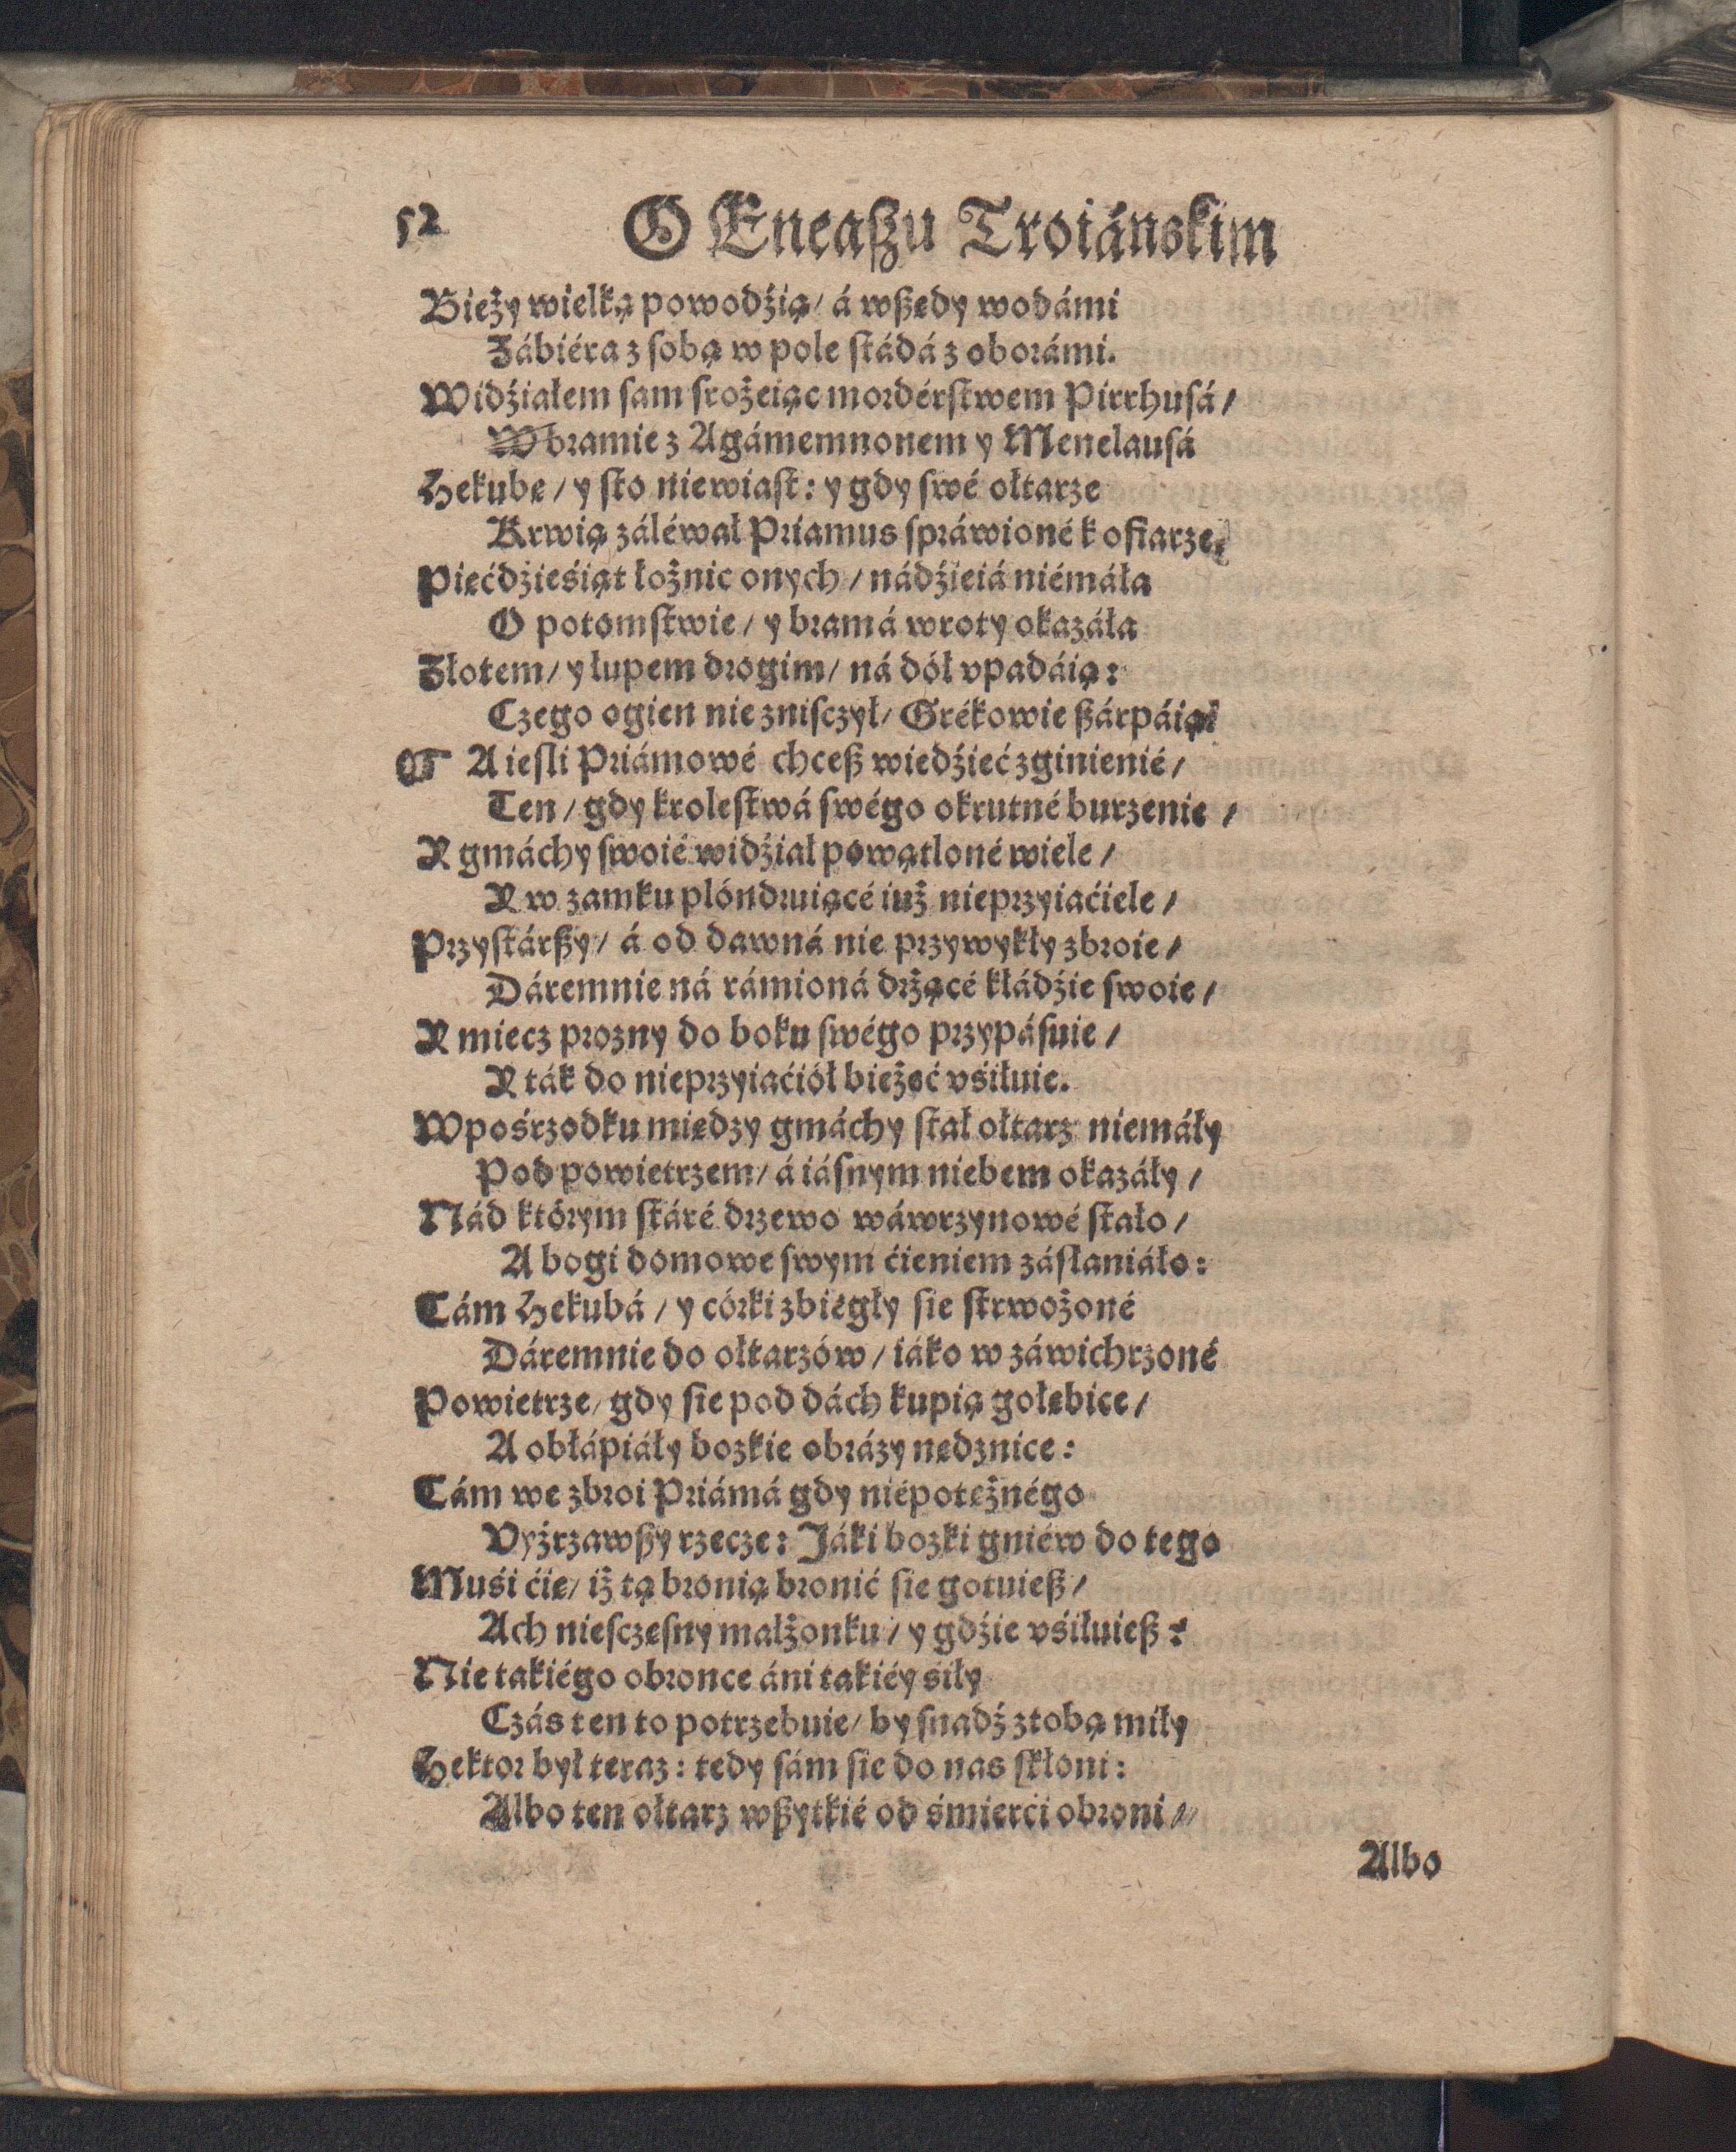 52 O Eneaßu Troiánskim
Bieży wielką powodźią/ á wßędy wodámi
Zábiéra z sobą w pole stádá z oborámi.
Widźiałem sam srożeiąc mordérstwem Pirrhusá/
W bramie z Agámemnonem y Menelausá
Hekubę/ y sto niewiast: y gdy swé ołtarze
Krwią záléwał Priamus spráwioné k ofiarze.
Pięćdźieśiąt łożnic onych/ nádźieiá niémáła
O potomstwie/ y bramá wroty okazáła
Złotem/ y łupem drogim/ ná dół vpadáią:
Czego ogien nie znisczył/ Grékowie ßárpáią.
A iesli Priámowé chceß wiedźieć zginienié/
Ten/ gdy krolestwá swégo okrutné burzenie/
Y gmáchy swoié widźiał powątloné wiele/
Y w zamku plóndruiącé iuż nieprzyiaćiele/
Przystárßy/ á od dawná nie przywykły zbroie/
Dáremnie ná rámioná drżącé kłádźie swoie/
Y miecz prozny do boku swégo przypásuie/
Y ták do nieprzyiaćiół bieżeć vśiłuie.
W pośrzodku miedzy gmáchy stał ołtarz niemáły
Pod powietrzem/ á iásnym niebem okazáły/
Nád którym stáré drzewo wáwrzynowé stało/
A bogi domowe swym ćieniem zásłaniáło:
Tám Hekubá/ y córki zbiegły sie strwożoné
Dáremnie do ołtarzów/ iáko w záwichrzoné
Powietrze/ gdy sie pod dách kupią gołębice/
A obłápiáły bozkie obrázy nędznice:
Tám we zbroi Priámá gdy niépotężnégo
Vyźrzawßy rzecze: Jáki bozki gniéw do tego
Muśi ćię/ iż tą bronią bronić sie gotuieß/
Ach niesczęsny małżonku/ y gdźie vśiłuieß?
Nie takiégo obronce áni takiéy siły
Czás ten to potrzebuie/ by snadź z tobą miły
Hektor był teraz: tedy sám sie do nas skłoni:
Albo ten ołtarz wßytkié od śmierci obroni/
Albo